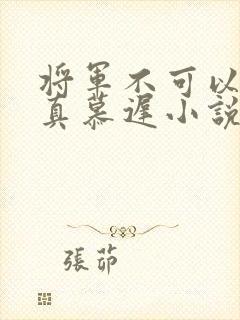 将軍不可以
真慕遲小說
張茆